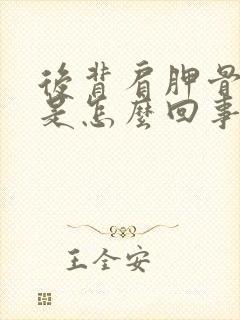 後背肩胛骨
是怎麼回事
王全安